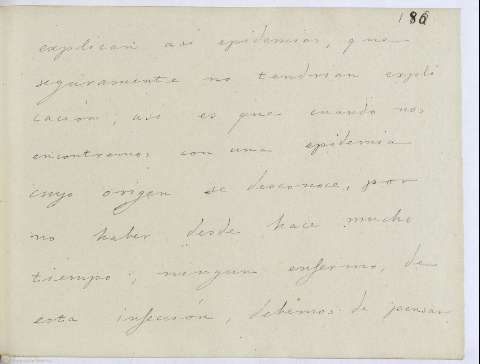 186
explican asi epidemias, que
seguramente no tendrian expli
cación, asi es que cuando nos
encontremos con una epidemia
cuyo origen se desconoce, por
no haber desde hace mucho
tiempo, ningun enfermo, de
esta infección, debemos de pensar